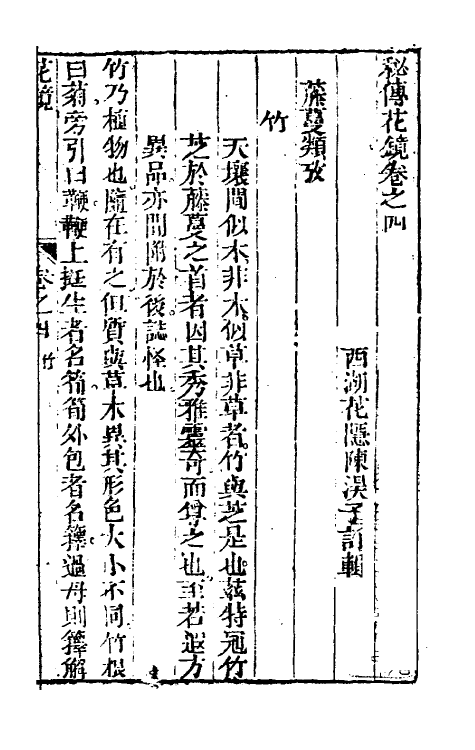 秘傳花鏡卷之四
西湖花隱陳淏子訂輯
藤蔓類攷
竹
天壤間似木非木似草非草者竹與芝是也茲特冠竹
芝於藤蔓之首者因其秀雅靈奇而尊之也至若遐方
異品亦間附於後誌怪也
竹乃植物也隨在有之但質與草木異其形色大小不同竹根
曰菊旁引曰鞭鞭上挺生者名筍筍外包者名籜過母則籜解
花鏡 卷之四 竹